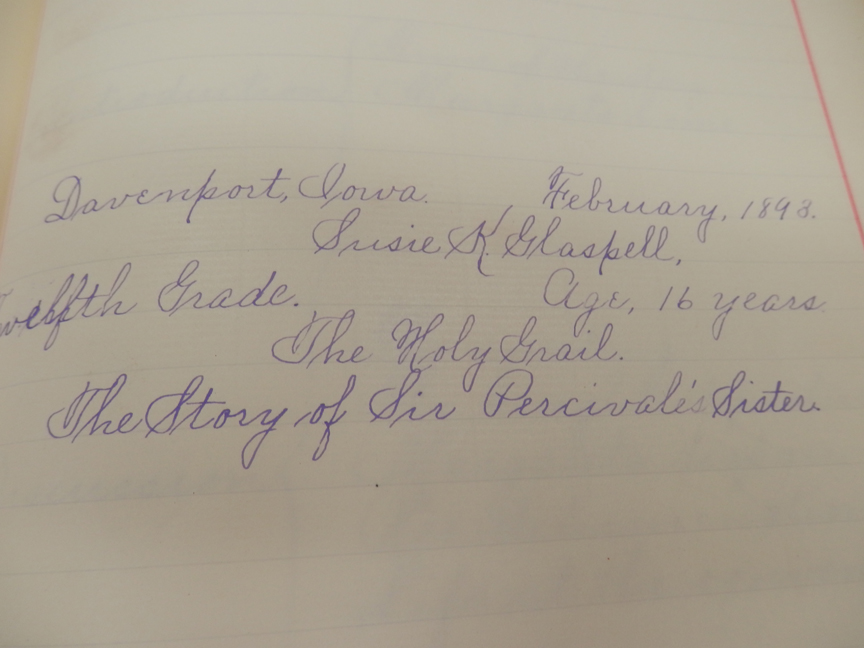 Davenport, Iowa. February, 1893.
Susie K. Glaspell,
Twelfth Grade. Age, 16 years
The Holy Grail.
The Story of Sir Percivale's Sister.